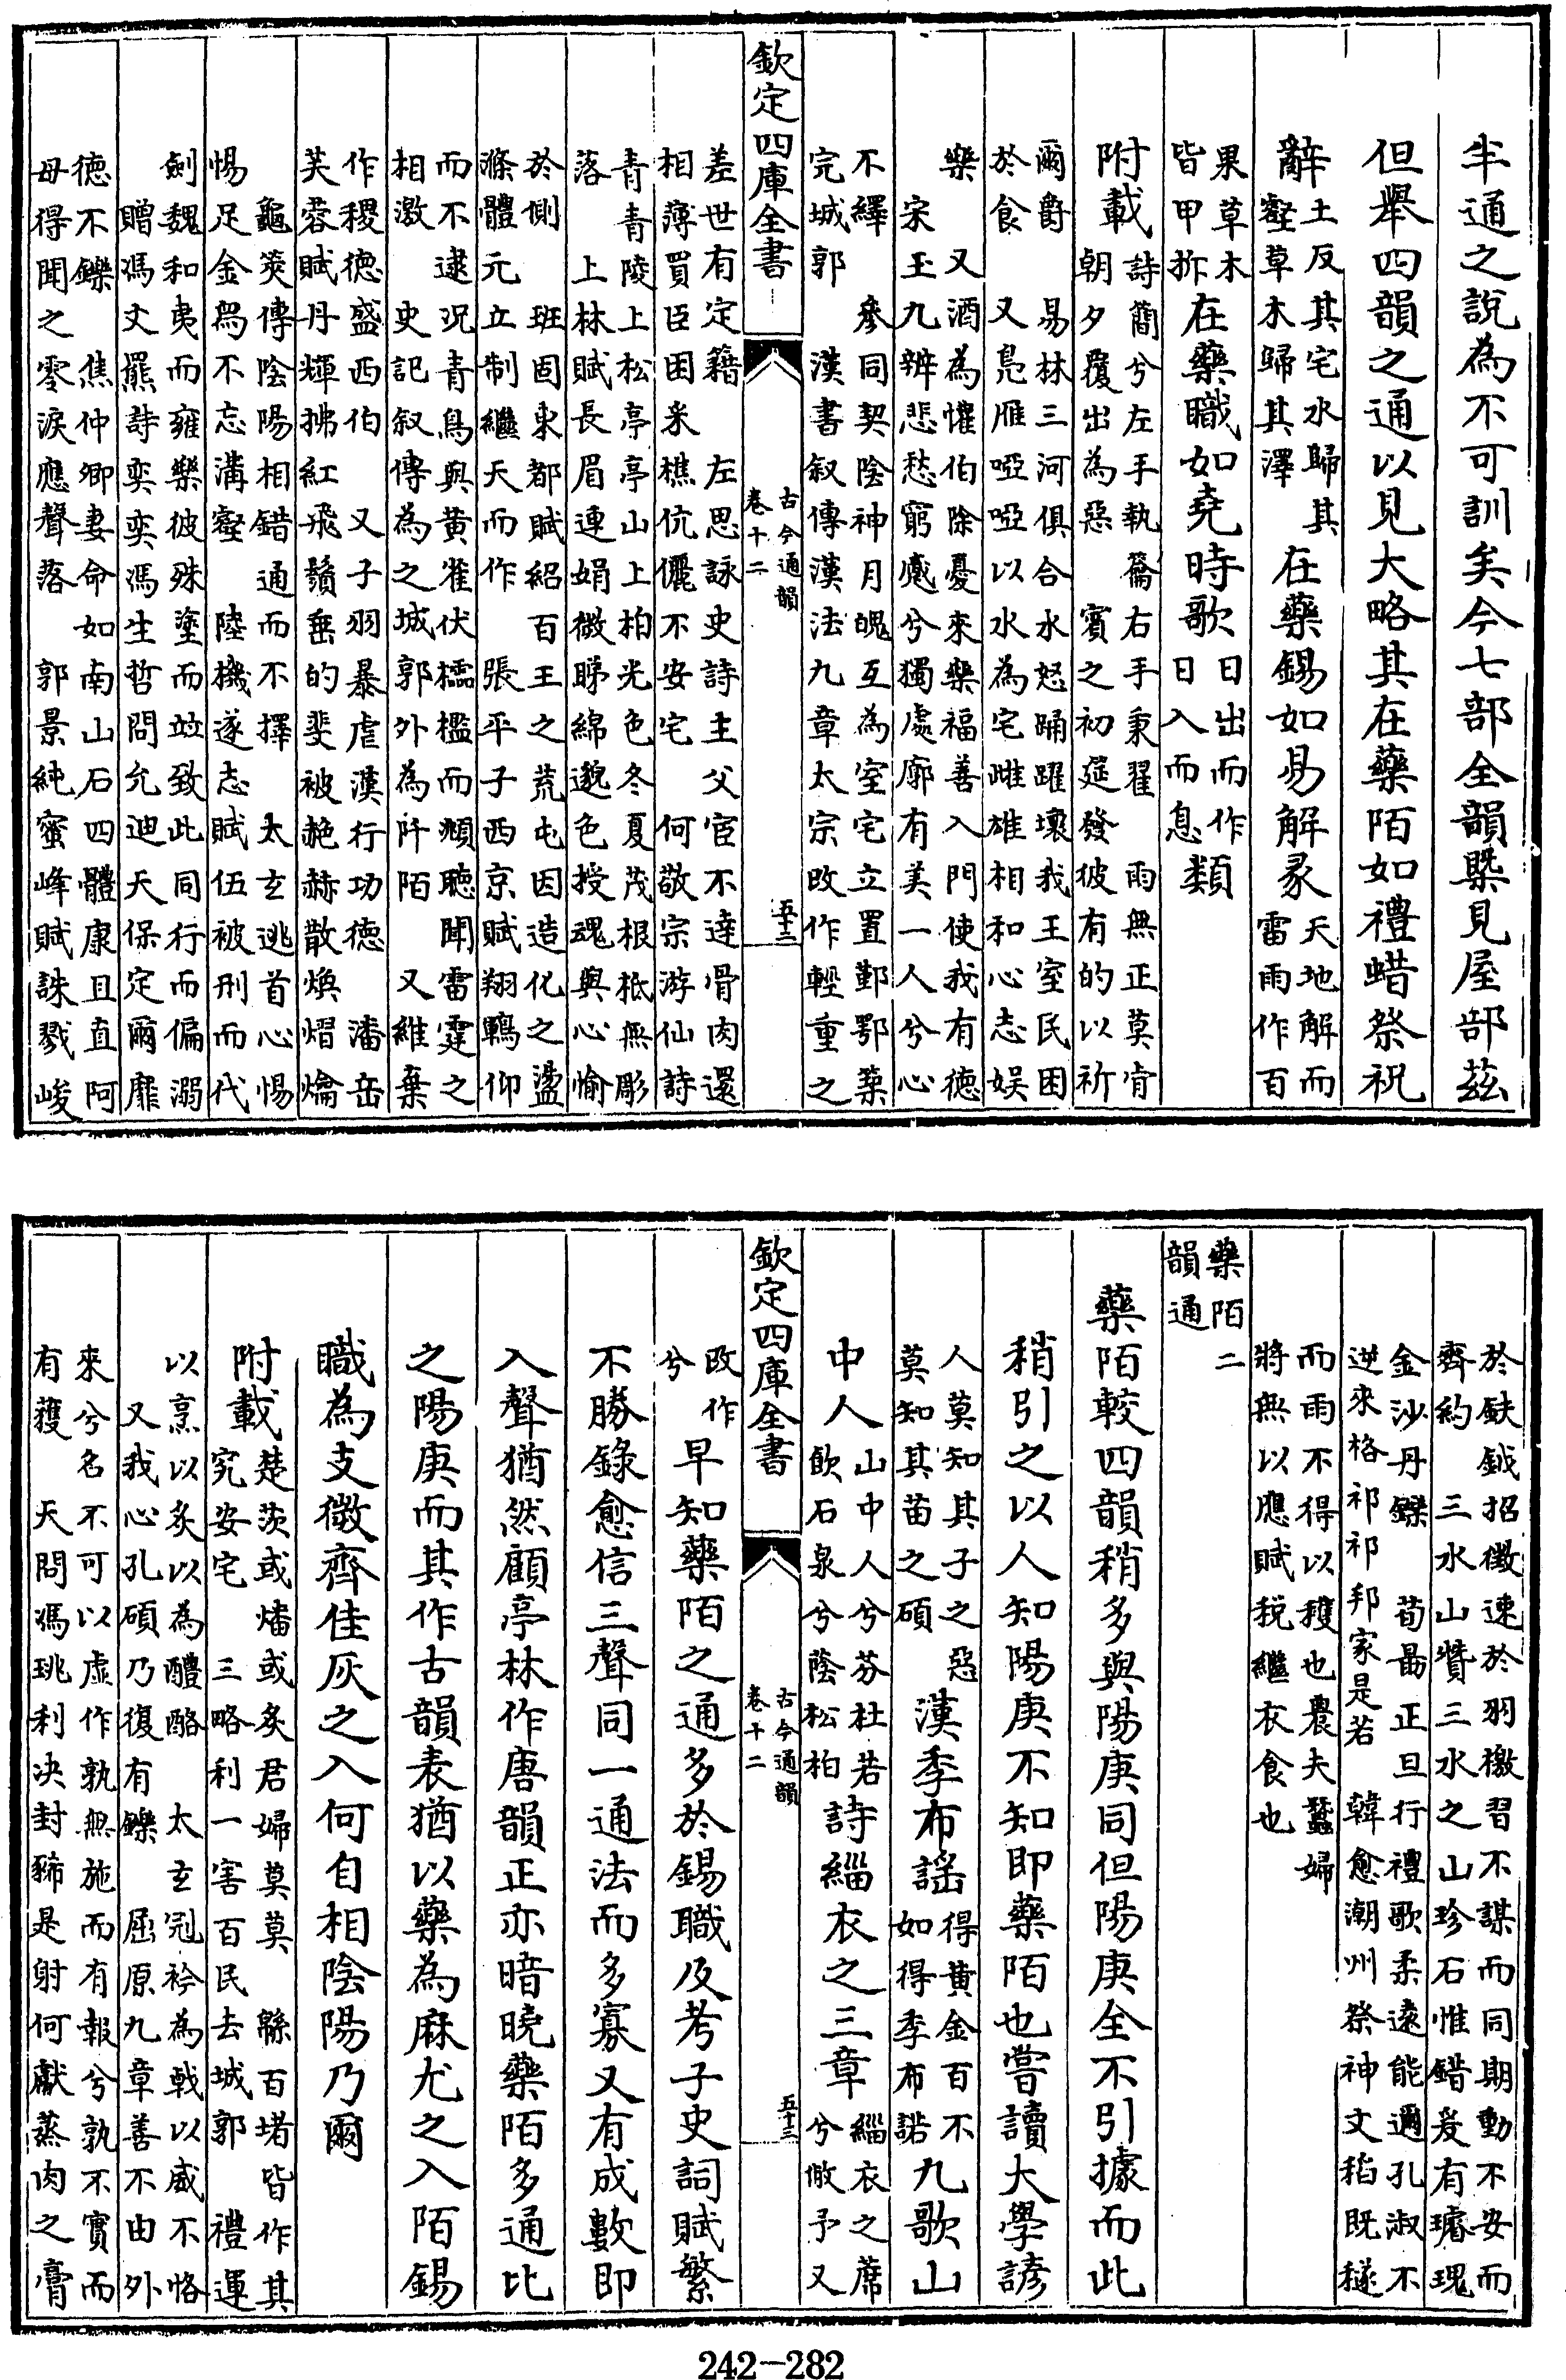 半通之說為不可訓矣今七部全韻槩見屋部茲
但舉四韻之通以見大略其在藥陌如禮蜡祭祝
辭土反其宅水歸其
壑草木歸其澤在藥錫如易解彖天地解而
雷雨作百
果草木
皆甲拆在藥職如堯時歌日出而作
日入而息類
附載詩簡兮左手執籥右手秉翟 雨無正莫肯
朝夕覆出為惡 賓之初筵發彼有的以祈
爾爵 易林三河俱合水怒踊躍壞我王室民困
於食 又鳧雁啞啞以水為宅雌雄相和心志娱
樂 又酒為懽伯除憂來樂福善入門使我有德
宋玉九辨悲愁窮慼兮獨處廓有美一人兮心
不繹 參同契陰神月魄互為室宅立置鄞鄂築
完城郭 漢書叙傳漢法九章太宗改作輕重之
欽定四庫全書
古今通韻
卷十二
五十二
差世有定籍 左思詠史詩主父宦不達骨肉還
相薄買臣困釆樵伉儷不安宅 何敬宗游仙詩
青青陵上松亭亭山上柏光色冬夏茂根柢無彫
落 上林賦長眉連娟微睇綿邈色授魂與心愉
於側 班固東都賦紹百王之荒屯因造化之盪
滌體元立制繼天而作 張平子西京賦翔鶤仰
而不逮況青鳥與黄雀伏櫺檻而頫聽聞雷霆之
相激 史記叙傳為之城郭外為阡陌 又維棄
作稷德盛西伯 又子羽暴虐漢行功德 潘岳
芙蓉賦丹輝拂紅飛鬚垂的斐被赩赫散煥熠爚
龜筴傳陰陽相錯通而不擇 太玄逃首心惕
惕足金舄不忘溝壑 陸機遂志賦伍被刑而代
劍魏和夷而雍樂彼殊塗而竝致此同行而偏溺
贈馮文羆詩奕奕馮生哲問允迪天保定爾靡
德不鑠 焦仲卿妻命如南山石四體康且直阿
母得聞之零淚應聲落 郭景純蜜蜂賦誅戮峻
於鈇鉞招徵速於羽檄習不謀而同期動不安而
齊約 三水山贊三水之山珍石惟錯爰有璿瑰
金沙丹鑠 荀勗正旦行禮歌柔遠能邇孔淑不
逆來格祁祁邦家是若 韓愈潮州祭神文稻既穟
而雨不得以穫也農夫蠶婦
將無以應賦税繼衣食也
藥陌二
韻通
藥陌較四韻稍多與陽庚同但陽庚全不引據而此
稍引之以人知陽庚不知即藥陌也嘗讀大學諺
人莫知其子之惡
莫知其苗之碩漢季布謡得黄金百不
如得季布諾九歌山
中人山中人兮芬杜若
飲石泉兮蔭松柏詩緇衣之三章緇衣之蓆
兮敝予又
改作
兮早知藥陌之通多於錫職及考子史詞賦繁
欽定四庫全書
古今通韻
卷十二
五十三
不勝錄愈信三聲同一通法而多寡又有成數即
入聲猶然顧亭林作唐韻正亦暗曉藥陌多通比
之陽庚而其作古韻表猶以藥為麻尤之入陌錫
職為支微齊佳灰之入何自相陰陽乃爾
附載楚茨或燔或炙君婦莫莫 緜百堵皆作其
究安宅 三略利一害百民去城郭 禮運
以烹以炙以為醴酪 太玄冠衿為戟以威不恪
又我心孔碩乃復有鑠 屈原九章善不由外
來兮名不可以虛作孰無施而有報兮孰不實而
有穫 天問馮珧利决封豨是射何獻蒸肉之膏
242—282